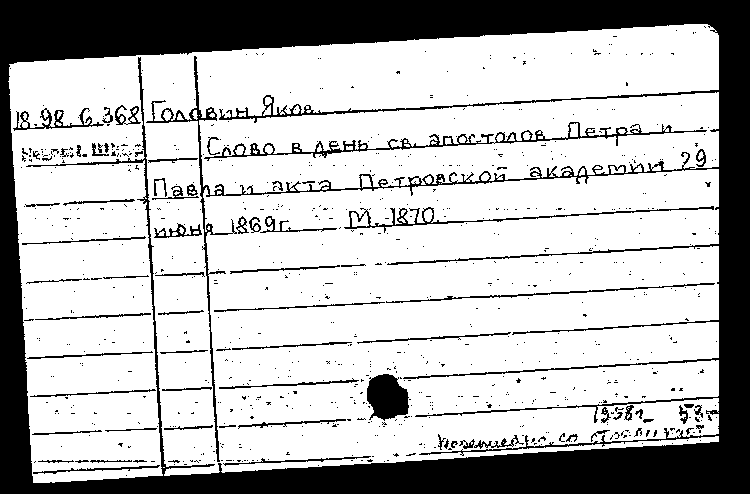 18.98.6.368 Головин, Яков.
Слово в день св. апостолов Петра и
Павла и акта Петровской академии 29
июня 1869г. М., 1870.
1958г.